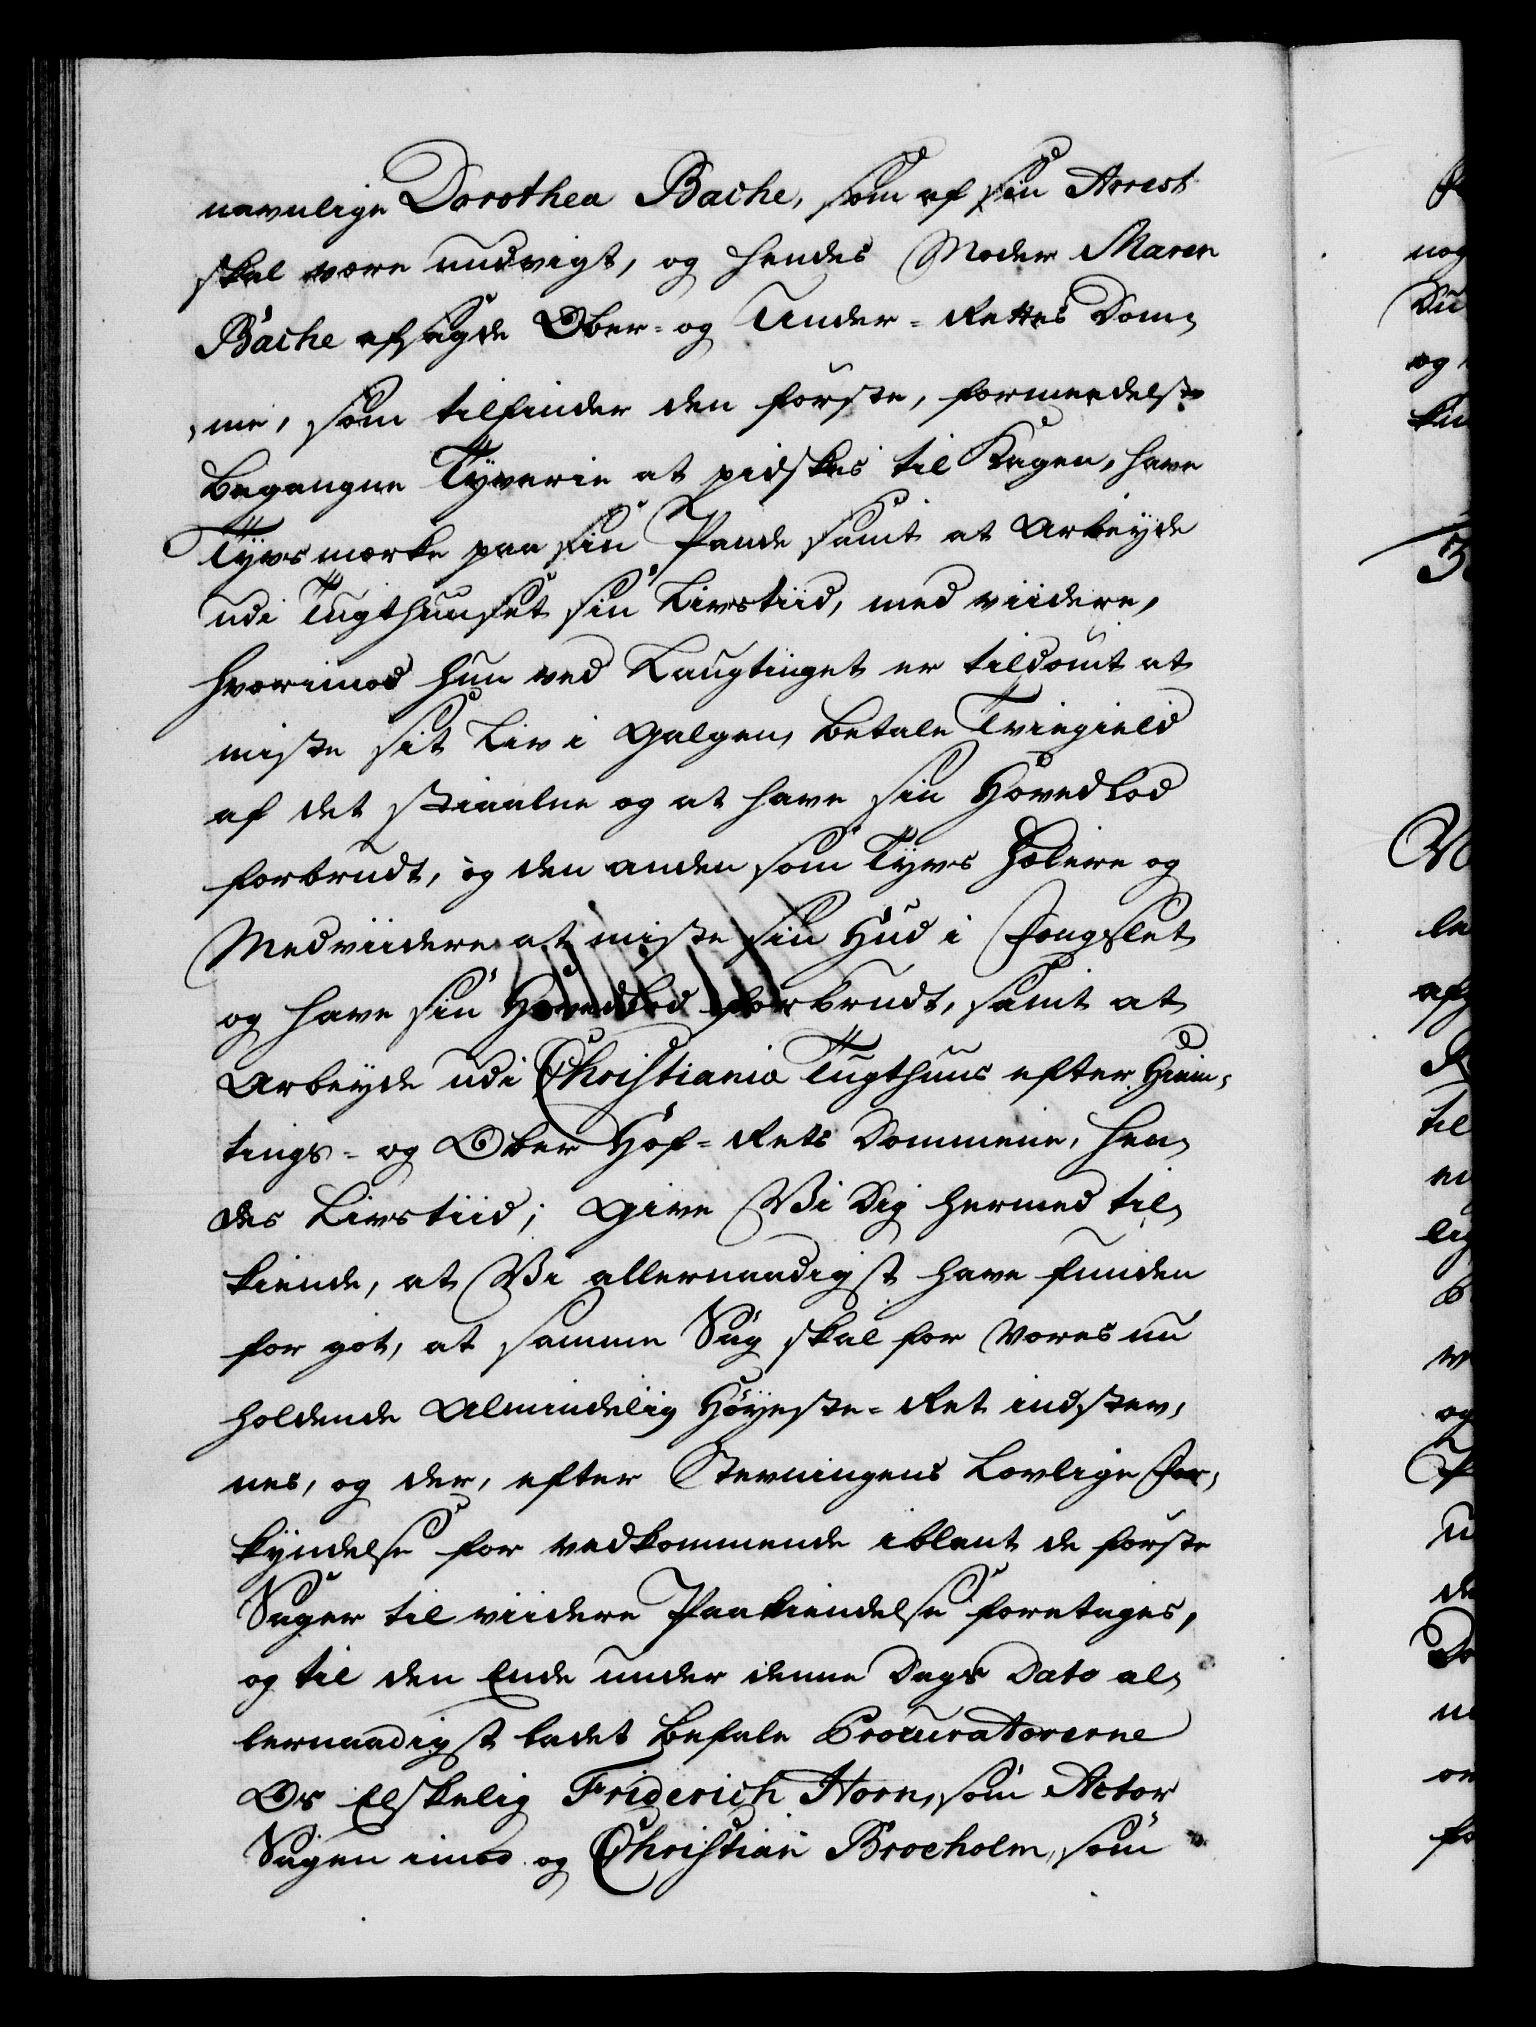 navnlige Dorothea Bache, som af sin Arrest
skal være undvigt, og hendes Moder Maren
Bache afsagde Ober- og Under-Rettes Dom-
me, som tilfinder den første, formeedelst
begangne Tyverie at pidskes til Kagen, have
Tyvs mærke paa sin Pande samt at Arbeyde
udi Tugthuuset sin Livstiid, med viidere,
hvorimod hun ved Laugtinget er tildømt at
miste sit Liv i Galgen, betale Tviegield
af det stiaalne og at have sin Hovedlod
forbrudt, og den anden som Tyvs Hælere og
Medviidere at miste sin Hud i Fengslet
og have sin Hovedlod forbrudt, samt at
Arbeyde udi Christiania Tugthuus efter Hiem-
tings- og Ober Hof-Rets Dommene, hen-
des Livstiid; give Vi Dig hermed til-
kiende, at Vi allernaadigst have funden
for got, at samme Sag skal for Vores nu
holdende Almindelig Høyeste-Ret indstev-
nes, og der, efter Stevningens Lovlige For-
kyndelse for vedkommende iblant de første
Sager til viidere Paakiendelse foretages,
og til den Ende under denne Dags Dato al-
lernaadigst ladet befale Procuratorerne
Os Elskelig Friderich Horn, som Actor
Sagen imod og Christian Brocholm, som